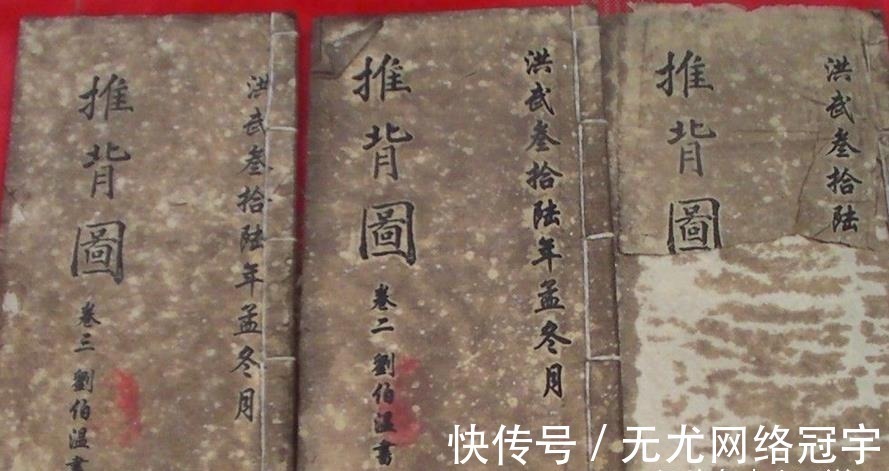 洪武叁拾陆年孟冬月
推背圖
卷三 劉伯温書
洪武叁拾陆年孟冬月
推背圖
卷二 劉伯温書
洪武叁拾陆
推背圖
快传号 / 无尤网络冠宇